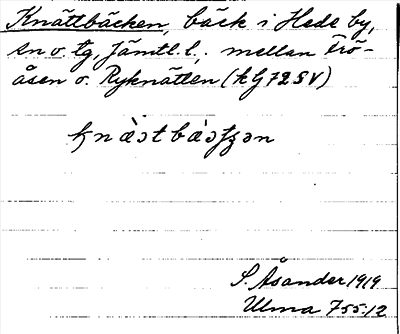 Knättbäcken, bäck i Hede by,
sn o. tg, Jämtl. l., mellan Trö-
åsen o. Ryknätten (kG72SV)
S. Åsander 1919
Ulma 755:12